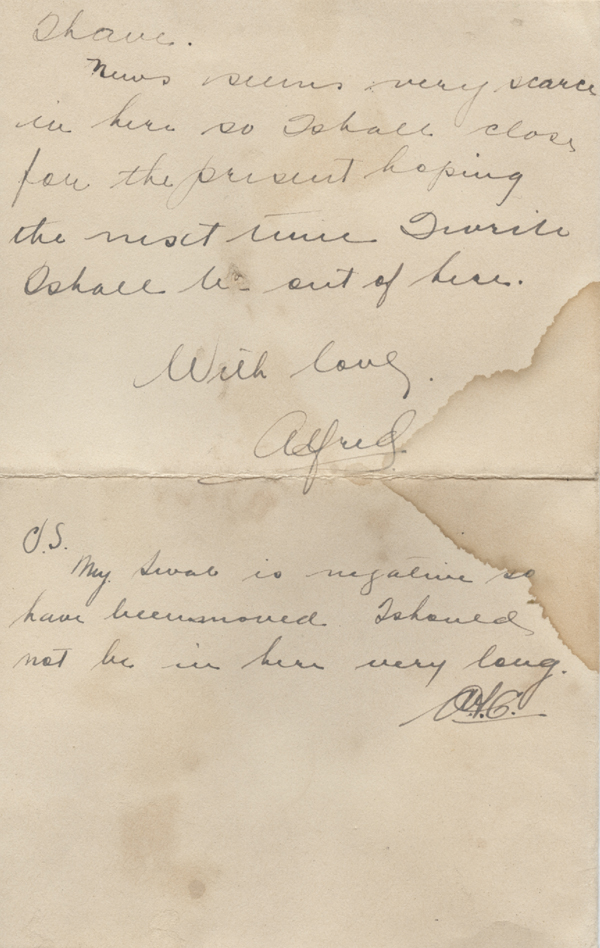 I have.
News seems very scarce
in here so I shall close
for the present hoping
the next time I write
I shall be out of here.
With love,
Alfred.
P.S.
My swab is negative so
have been moved. I should
not be in here very long.